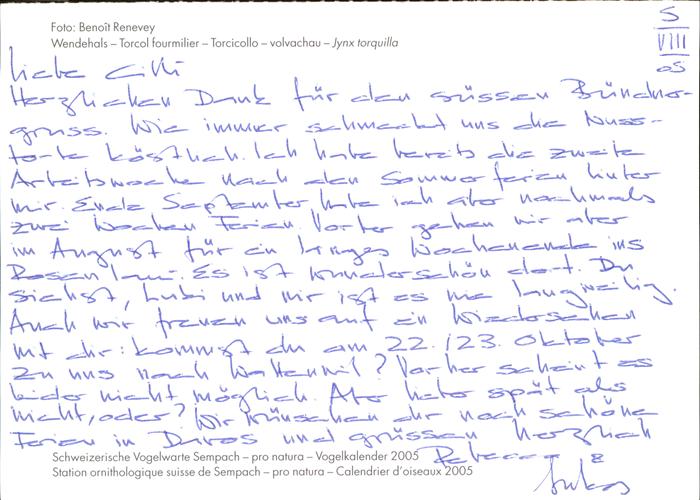 Foto: Benoît Renevey
Wendehals – Torcol fourmilier – Torcicollo – volvachau – Jynx torquilla
5
VIII
05
Liebe Cilli
Herzlichen Dank für den süssen Bündner-
gruss. Wie immer schmeckt uns die Nuss-
torte köstlich. Ich habe bereits die zweite
Arbeitswoche nach den Sommerferien hinter
mir. Ende September habe ich aber nochmals
zwei Wochen Ferien. Vorher gehen wir aber
im August für ein langes Wochenende ins
Rosenlaui. Es ist wunderschön dort. Du
siehst, Lubi und mir ist es nie langweilig.
Auch wir freuen uns auf ein Wiedersehen
mit dir: kommst du am 22./23. Oktober
zu uns nach Wattenwil? Vorher scheint es
leider nicht möglich. Aber lieber spät als
nicht, oder? Wir wünschen dir noch schöne
Ferien in Davos und grüssen herzlich
Schweizerische Vogelwarte Sempach – pro natura – Vogelkalender 2005
Rebecca &
Station ornithologique suisse de Sempach – pro natura – Calendrier d'oiseaux 2005
Lukas